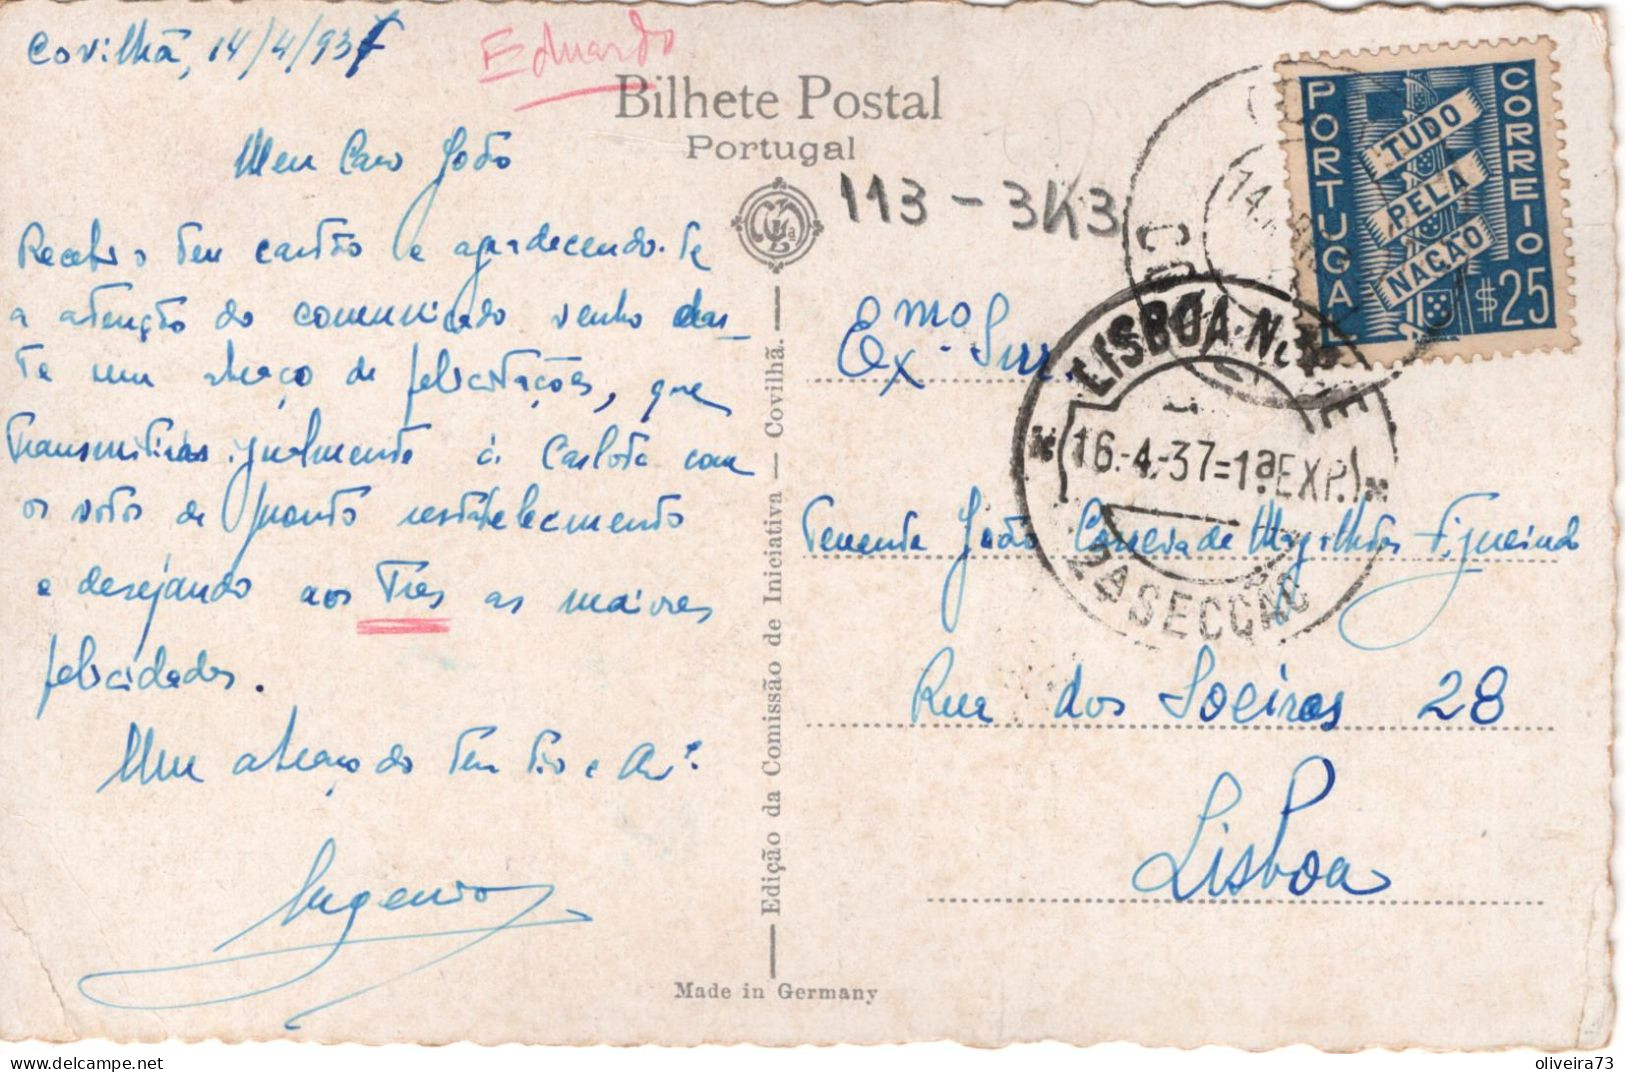 Covilhã, 14/4/937
Eduardo
Bilhete Postal
Portugal
Meu Caro João
Recebi o teu cartão e agardecendo-te
a atenção do comunicado venho dar-
te um abraço de felicitações, que
transmitiras igualmente á Carlota com
os votos de pronto restabelecimento
e desejando aos Tres as maiores
felicidades.
Um abraço do teu tio e Am.º
Eugenio
Edição da Comissão de Iniciativa — Covilhã.
Made in Germany
113-3K3
PORTUGAL
CORREIO
TUDO
PELA
NAÇÃO
$25
LISBOA
16.-4.-37=1ªEXP.
2ª SECÇÃO
Exmo Snr.
Tenente João Correia de Magalhães Figueiredo
Rua dos Soeiros 28
Lisboa
delcampe.net
oliveira73